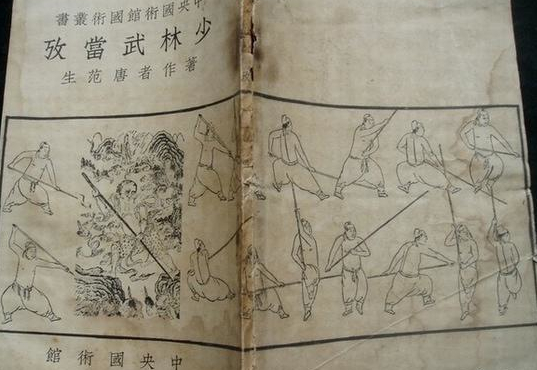 中央國術館國術叢書
少林武當攷
著作者唐范生
中央國術館